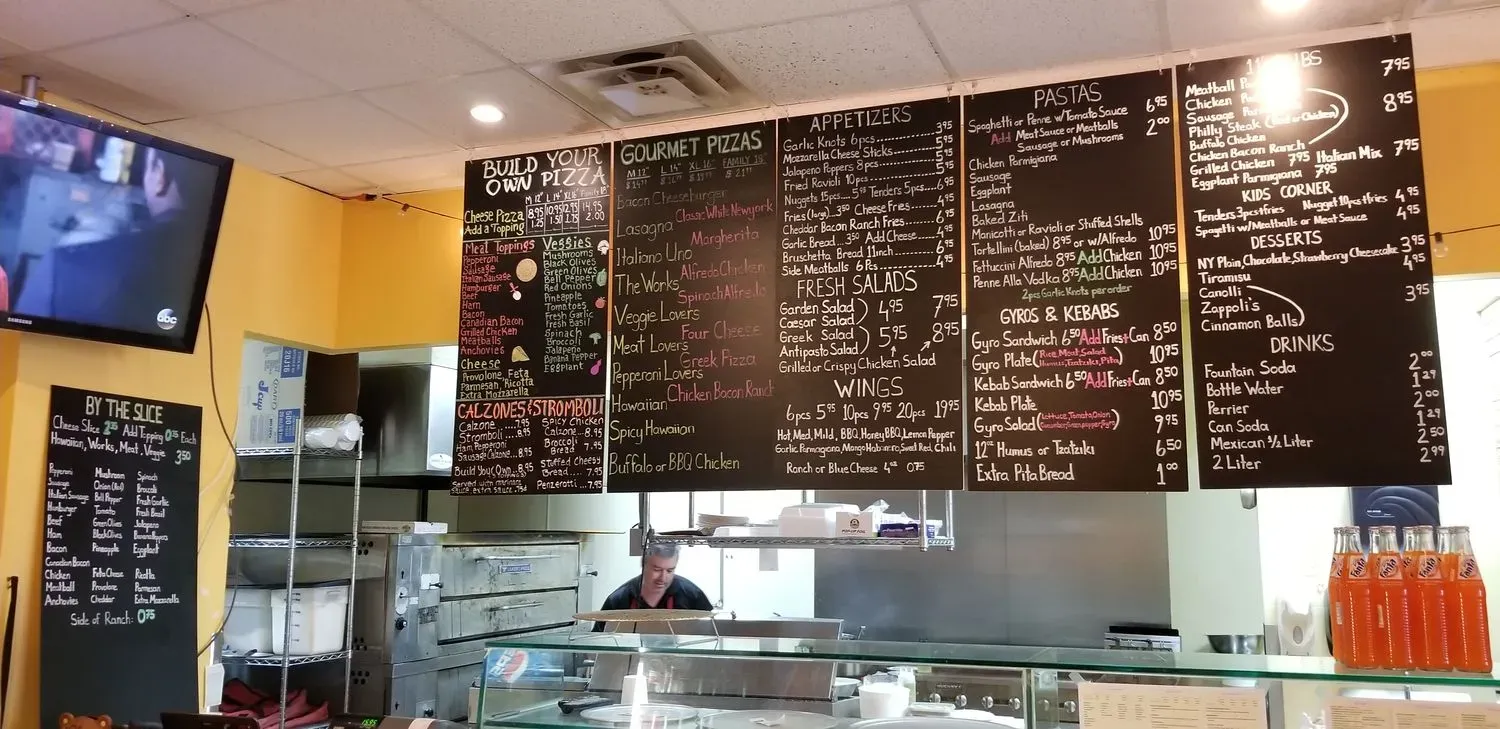 abc
SAMSUNG
BY THE SLICE
Cheese Slice Add Topping 0.75 Each
Hawaiian, Works, Meat, Veggie 3.50
Pepperoni Mushroom Spinach
Sausage Onion (Red) Broccoli
Italian Sausage Bell Pepper Fresh Garlic
Hamburger Tomato Fresh Basil
Beef Green Olives Jalapeno
Ham Black Olives Banana Peppers
Bacon Pineapple Eggplant
Canadian Bacon
Chicken Feta Cheese Ricotta
Meatball Provolone Parmesan
Anchovies Cheddar Extra Mozzarella
Side of Ranch: 0.75
BUILD YOUR
OWN PIZZA
M 12" L 14" XL 16" Family 18"
Cheese Pizza 8.95 10.95 12.95 14.95
Add a Topping 1.25 1.50 1.75 2.00
Meat Toppings
Pepperoni
Sausage
Italian Sausage
Hamburger
Beef
Ham
Bacon
Canadian Bacon
Grilled Chicken
Meatballs
Anchovies
Cheese
Provolone, Feta
Parmesan, Ricotta
Extra Mozzarella
Veggies
Mushrooms
Black Olives
Green Olives
Bell Pepper
Red Onions
Pineapple
Tomatoes
Fresh Garlic
Fresh Basil
Spinach
Broccoli
Jalapeno
Banana Pepper
Eggplant
CALZONES & STROMBOLI
Calzone 7.95
Stromboli 8.95
Ham, Pepperoni
Sausage Calzone 8.95
Build Your Own 8.95
Served with marinara
Sauce, extra sauce .75¢
Spicy Chicken
Calzone 8.95
Broccoli
Bread 7.95
Stuffed Cheesy
Bread 7.95
Penzerotti 7.95
GOURMET PIZZAS
M 12" L 14" XL 16" FAMILY 18"
Bacon Cheeseburger
Classic White New york
Lasagna
Margherita
Italiano Uno
Alfredo Chicken
The Works
Spinach Alfredo
Veggie Lovers
Four Cheese
Meat Lovers
Greek Pizza
Pepperoni Lovers
Chicken Bacon Ranch
Hawaiian
Spicy Hawaiian
Buffalo or BBQ Chicken
APPETIZERS
Garlic Knots 6 pcs 3.95
Mozzarella Cheese Sticks 5.95
Jalapeno Peppers 8 pcs 5.95
Fried Ravioli 10 pcs 5.95
Nuggets 15 pcs 5.95 Tenders 5 pcs 6.95
Fries (large) 3.50 Cheese Fries 4.95
Cheddar Bacon Ranch Fries 6.95
Garlic Bread 3.50 Add Cheese 4.95
Bruschetta Bread 11 inch 6.95
Side Meatballs 6 Pcs 4.95
FRESH SALADS
Garden Salad
Caesar Salad 4.95 7.95
Greek Salad
Antipasto Salad 5.95 8.95
Grilled or Crispy Chicken Salad
WINGS
6pcs 5.95 10pcs 9.95 20pcs 19.95
Hot, Med, Mild, BBQ, Honey BBQ, Lemon Pepper
Garlic Parmagiana, Mango Habanero, Sweet Red, Chili
Ranch or Blue Cheese 4oz 0.75
PASTAS
Spaghetti or Penne w/Tomato Sauce 6.95
Add Meat Sauce or Meatballs 2.00
Sausage or Mushrooms
Chicken Parmigiana
Sausage
Eggplant
Lasagna
Baked Ziti
Manicotti or Ravioli or Stuffed Shells
Tortellini (baked) 8.95 or w/Alfredo 10.95
Fettuccini Alfredo 8.95 Add Chicken 10.95
Penne Alla Vodka 8.95 Add Chicken 10.95
2pcs Garlic Knots per order
GYROS & KEBABS
Gyro Sandwich 6.50 Add Fries+Can 8.50
Gyro Plate (Rice, Meat, Salad, Humus, Tzatziki, Pita) 10.95
Kebab Sandwich 6.50 Add Fries+Can 8.50
Kebab Plate 10.95
Gyro Salad (Lettuce, Tomato, Onion 9.95
12oz Humus or Tzatziki 6.50
Extra Pita Bread 1.00
Meatball 7.95
Chicken
Sausage 8.95
Philly Steak (Beef or Chicken)
Buffalo Chicken
Chicken Bacon Ranch
Grilled Chicken 7.95 Italian Mix 7.95
Eggplant Parmigiana 7.95
KIDS CORNER
Tenders 3pcs+fries Nugget 10pcs+fries 4.95
Spagetti w/Meatballs or Meat Sauce 4.95
DESSERTS
NY Plain, Chocolate, Strawberry Cheesecake 3.95
Tiramisu 4.95
Canolli
Zappoli's 3.95
Cinnamon Balls
DRINKS
Fountain Soda 2.00
Bottle Water 1.29
Perrier 2.00
Can Soda 1.29
Mexican ½ Liter 2.50
2 Liter 2.99
Fanta
Fanta
Fanta
Fanta